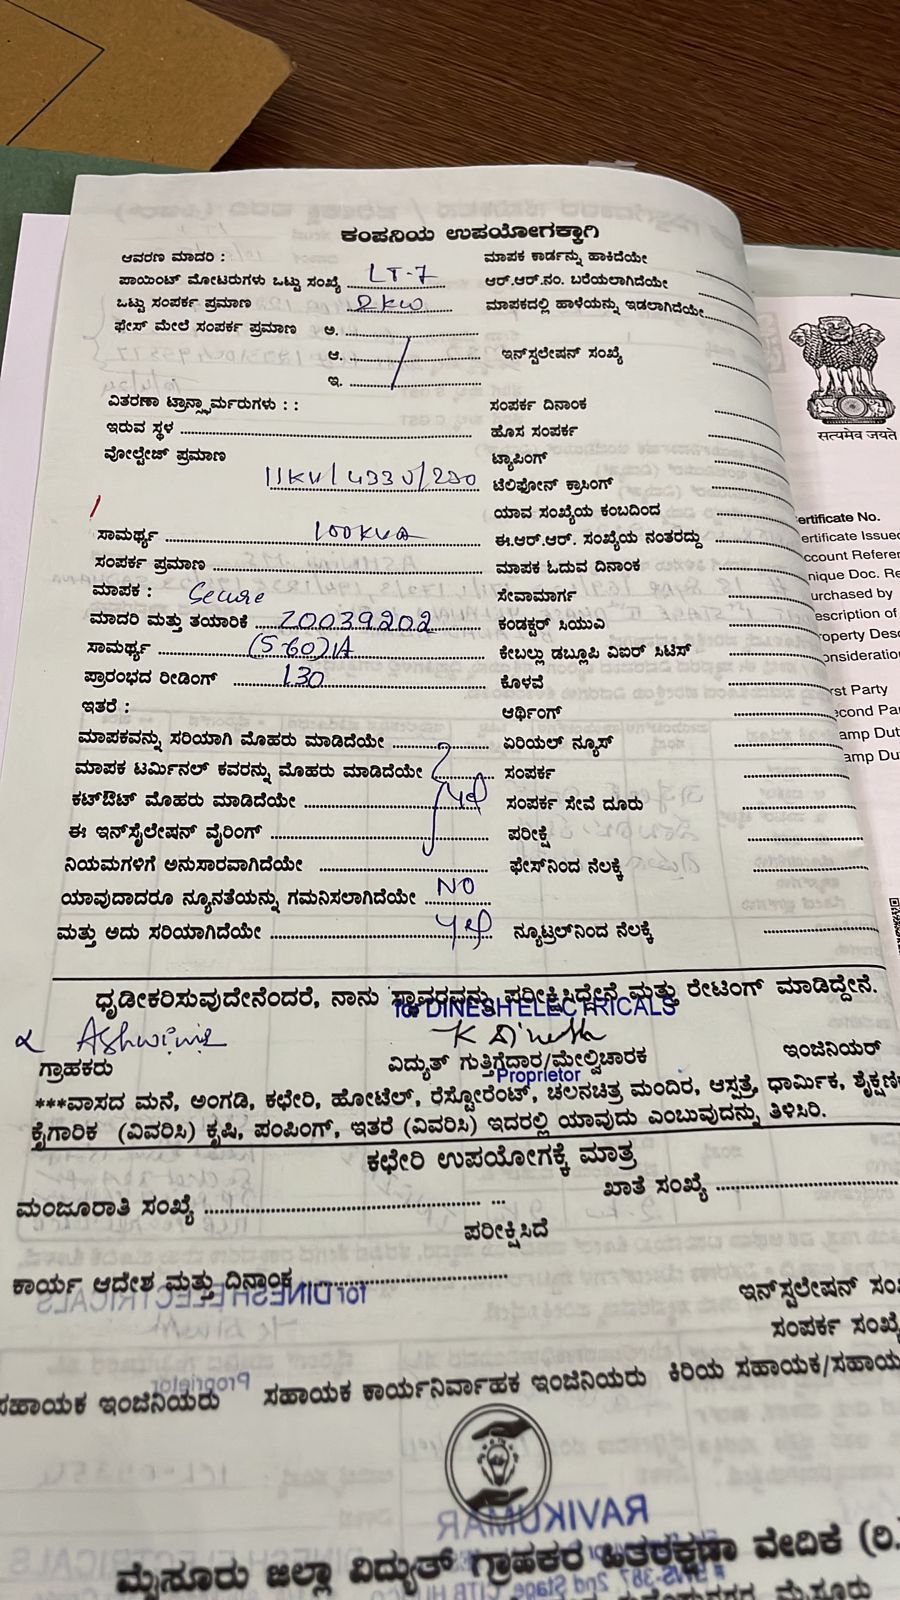 ಕಂಪನಿಯ ಉಪಯೋಗಕ್ಕಾಗಿ
ಆವರಣ ಮಾದರಿ :
ಮಾಪಕ ಕಾರ್ಡನ್ನು ಹಾಕಿದೆಯೇ
ಪಾಯಿಂಟ್ ಮೋಟರುಗಳು ಒಟ್ಟು ಸಂಖ್ಯೆ LT-7
ಆರ್.ಆರ್.ನಂ. ಬರೆಯಲಾಗಿದೆಯೇ
ಒಟ್ಟು ಸಂಪರ್ಕ ಪ್ರಮಾಣ 2KW
ಮಾಪಕದಲ್ಲಿ ಹಾಳೆಯನ್ನು ಇಡಲಾಗಿದೆಯೇ
ಫೇಸ್ ಮೇಲೆ ಸಂಪರ್ಕ ಪ್ರಮಾಣ ಅ.
ಆ.
ಇನ್‌ಸ್ಟಲೇಷನ್ ಸಂಖ್ಯೆ
ಇ.
ವಿತರಣಾ ಟ್ರಾನ್ಸ್‌ಫಾರ್ಮರುಗಳು : :
ಸಂಪರ್ಕ ದಿನಾಂಕ
ಇರುವ ಸ್ಥಳ
ಹೊಸ ಸಂಪರ್ಕ
ವೋಲ್ಟೇಜ್ ಪ್ರಮಾಣ
ಟ್ಯಾಪಿಂಗ್
11KV/433V/230
ಟೆಲಿಫೋನ್ ಕ್ರಾಸಿಂಗ್
ಯಾವ ಸಂಖ್ಯೆಯ ಕಂಬದಿಂದ
ಸಾಮರ್ಥ್ಯ 100KVA
ಈ.ಆರ್.ಆರ್. ಸಂಖ್ಯೆಯ ನಂತರದ್ದು
ಸಂಪರ್ಕ ಪ್ರಮಾಣ
ಮಾಪಕ ಓದುವ ದಿನಾಂಕ
ಮಾಪಕ : Secure
ಸೇವಾಮಾರ್ಗ
ಮಾದರಿ ಮತ್ತು ತಯಾರಿಕೆ Z0039202
ಕಂಡಕ್ಟರ್ ಸಿಯುವಿ
ಸಾಮರ್ಥ್ಯ (5-60)A
ಕೇಬಲ್ಲು ಡಬ್ಲೂಪಿ ವಿಐರ್ ಸಿಟಿಸ್
ಪ್ರಾರಂಭದ ರೀಡಿಂಗ್ 130
ಕೊಳವೆ
ಇತರೆ :
ಆರ್ಥಿಂಗ್
ಮಾಪಕವನ್ನು ಸರಿಯಾಗಿ ಮೊಹರು ಮಾಡಿದೆಯೇ
ಏರಿಯಲ್ ನ್ಯೂಸ್
ಮಾಪಕ ಟರ್ಮಿನಲ್ ಕವರನ್ನು ಮೊಹರು ಮಾಡಿದೆಯೇ
ಸಂಪರ್ಕ
ಕಟ್‌ಔಟ್ ಮೊಹರು ಮಾಡಿದೆಯೇ yes
ಸಂಪರ್ಕ ಸೇವೆ ದೂರು
ಈ ಇನ್‌ಸ್ಟೆಲೇಷನ್ ವೈರಿಂಗ್
ಪರೀಕ್ಷೆ
ನಿಯಮಗಳಿಗೆ ಅನುಸಾರವಾಗಿದೆಯೇ
ಫೇಸ್‌ನಿಂದ ನೆಲಕ್ಕೆ
ಯಾವುದಾದರೂ ನ್ಯೂನತೆಯನ್ನು ಗಮನಿಸಲಾಗಿದೆಯೇ NO
ಮತ್ತು ಅದು ಸರಿಯಾಗಿದೆಯೇ yes
ನ್ಯೂಟ್ರಲ್‌ನಿಂದ ನೆಲಕ್ಕೆ
ಧೃಡೀಕರಿಸುವುದೇನೆಂದರೆ, ನಾನು ಸ್ಥಾವರವನ್ನು ಪರೀಕ್ಷಿಸಿದ್ದೇನೆ ಮತ್ತು ರೇಟಿಂಗ್ ಮಾಡಿದ್ದೇನೆ.
for DINESH ELECTRICALS
Ashwini
K Dinesh
ಗ್ರಾಹಕರು
ವಿದ್ಯುತ್ ಗುತ್ತಿಗೆದಾರ/ಮೇಲ್ವಿಚಾರಕ
ಇಂಜಿನಿಯರ್
Proprietor
***ವಾಸದ ಮನೆ, ಅಂಗಡಿ, ಕಛೇರಿ, ಹೋಟೆಲ್, ರೆಸ್ಟೋರೆಂಟ್, ಚಲನಚಿತ್ರ ಮಂದಿರ, ಆಸ್ಪತ್ರೆ, ಧಾರ್ಮಿಕ, ಶೈಕ್ಷಣಿಕ
ಕೈಗಾರಿಕ (ವಿವರಿಸಿ) ಕೃಷಿ, ಪಂಪಿಂಗ್, ಇತರೆ (ವಿವರಿಸಿ) ಇದರಲ್ಲಿ ಯಾವುದು ಎಂಬುವುದನ್ನು ತಿಳಿಸಿರಿ.
ಕಛೇರಿ ಉಪಯೋಗಕ್ಕೆ ಮಾತ್ರ
ಮಂಜೂರಾತಿ ಸಂಖ್ಯೆ
ಖಾತೆ ಸಂಖ್ಯೆ
ಪರೀಕ್ಷಿಸಿದೆ
ಕಾರ್ಯ ಆದೇಶ ಮತ್ತು ದಿನಾಂಕ
ಇನ್‌ಸ್ಟಲೇಷನ್
ಸಂಪರ್ಕ ಸಂಖ್ಯೆ
ಸಹಾಯಕ ಇಂಜಿನಿಯರು
ಸಹಾಯಕ ಕಾರ್ಯನಿರ್ವಾಹಕ ಇಂಜಿನಿಯರು
ಕಿರಿಯ ಸಹಾಯಕ/ಸಹಾಯ
ಮೈಸೂರು ಜಿಲ್ಲಾ ವಿದ್ಯುತ್ ಗ್ರಾಹಕರ ಹಿತರಕ್ಷಣಾ ವೇದಿಕೆ (ರಿ.)
सत्यमेव जयते
ertificate No.
ertificate Issued
ccount Referen
nique Doc. Re
urchased by
escription of
roperty Desc
onsideration
rst Party
econd Par
amp Duty
amp Du